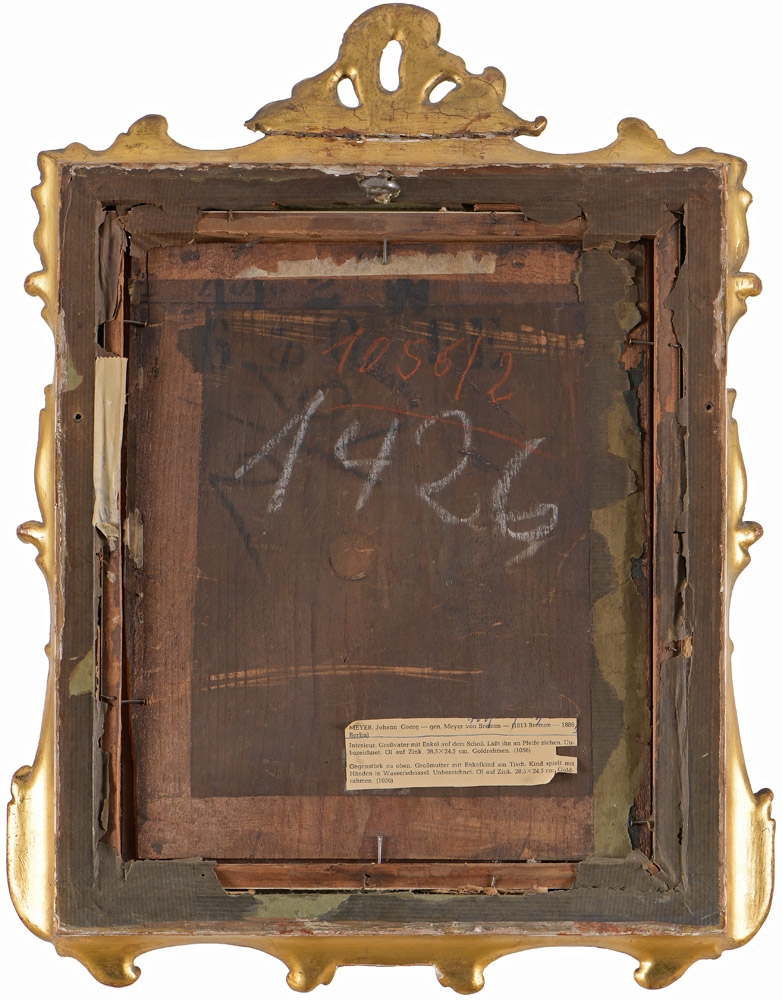 1056/2
1426
MEYER, Johann Georg — gen. Meyer von Bremen — (1813 Bremen — 1886
Berlin)
Interieur. Großvater mit Enkel auf dem Schoß. Läßt ihn an Pfeife ziehen. Un-
bezeichnet. Öl auf Zink. 28,5×24,5 cm. Goldrahmen. (1056)
Gegenstück zu oben. Großmutter mit Enkelkind am Tisch. Kind spielt mit
Händen in Wasserschüssel. Unbezeichnet. Öl auf Zink. 28,5×24,5 cm. Gold-
rahmen. (1056)